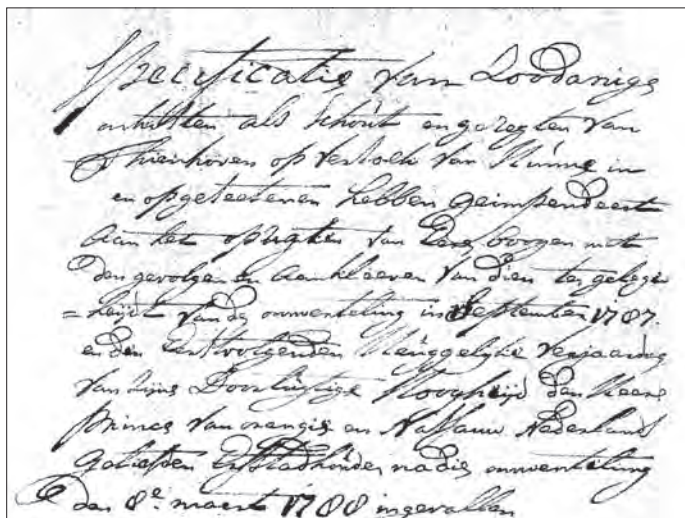 Specificatie van Zoodanige
onkosten als Schout en geregten van
Thienhoven op versoek van Minne in
en opgeseetenen hebben geimpendeert
aan het opregten van Eere boogen met
den gevolgen en aankleeven van dien ter gelegen
=heijd van de omwenteling in September 1787.
en den Eerstvolgenden Heuggelijke verjaardag
van zijne Doorlugtige Hoogheijd den Heere
Prince van orangie en Nassauw Nederlands
geliefden Erfstadhouder na die omwenteling
den 8e maart 1788 ingevallen